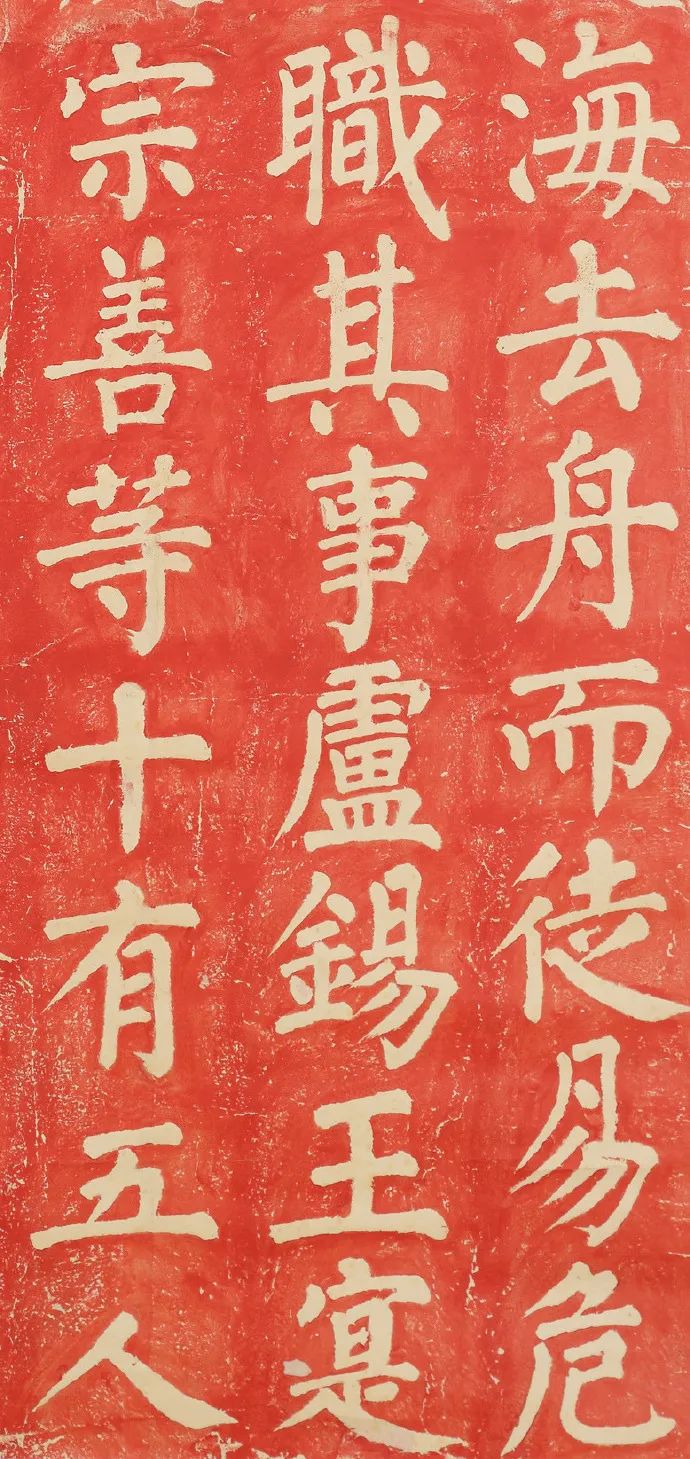 海去舟而徙易危
職其事盧錫王寔
宗善等十有五人